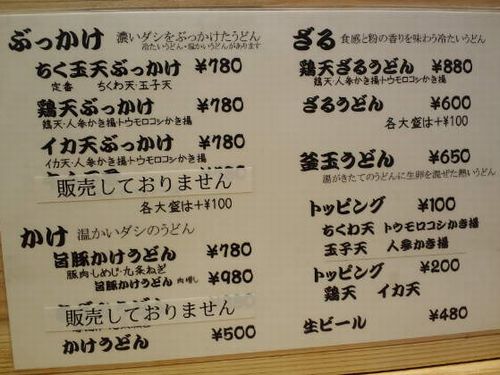 ぶっかけ 濃いダシをぶっかけたうどん
冷たいうどん・温かいうどんがあります
ちく玉天ぶっかけ ¥780
定番 ちくわ天・玉子天
鶏天ぶっかけ ¥780
鶏天・人参かき揚トウモロコシかき揚
イカ天ぶっかけ ¥780
イカ天・人参かき揚トウモロコシかき揚
販売しておりません
各大盛は+¥100
かけ 温かいダシのうどん
旨豚かけうどん ¥780
豚肉・しめじ・九条ねぎ
旨豚かけうどん 肉増し ¥980
販売しておりません
かけうどん ¥500
ざる 食感と粉の香りを味わう冷たいうどん
鶏天ざるうどん ¥880
鶏天・人参かき揚トウモロコシかき揚
ざるうどん ¥600
各大盛は+¥100
釜玉うどん ¥650
湯がきたてのうどんに生卵を混ぜた熱いうどん
トッピング ¥100
ちくわ天 トウモロコシかき揚
玉子天 人参かき揚
トッピング ¥200
鶏天 イカ天
生ビール ¥480